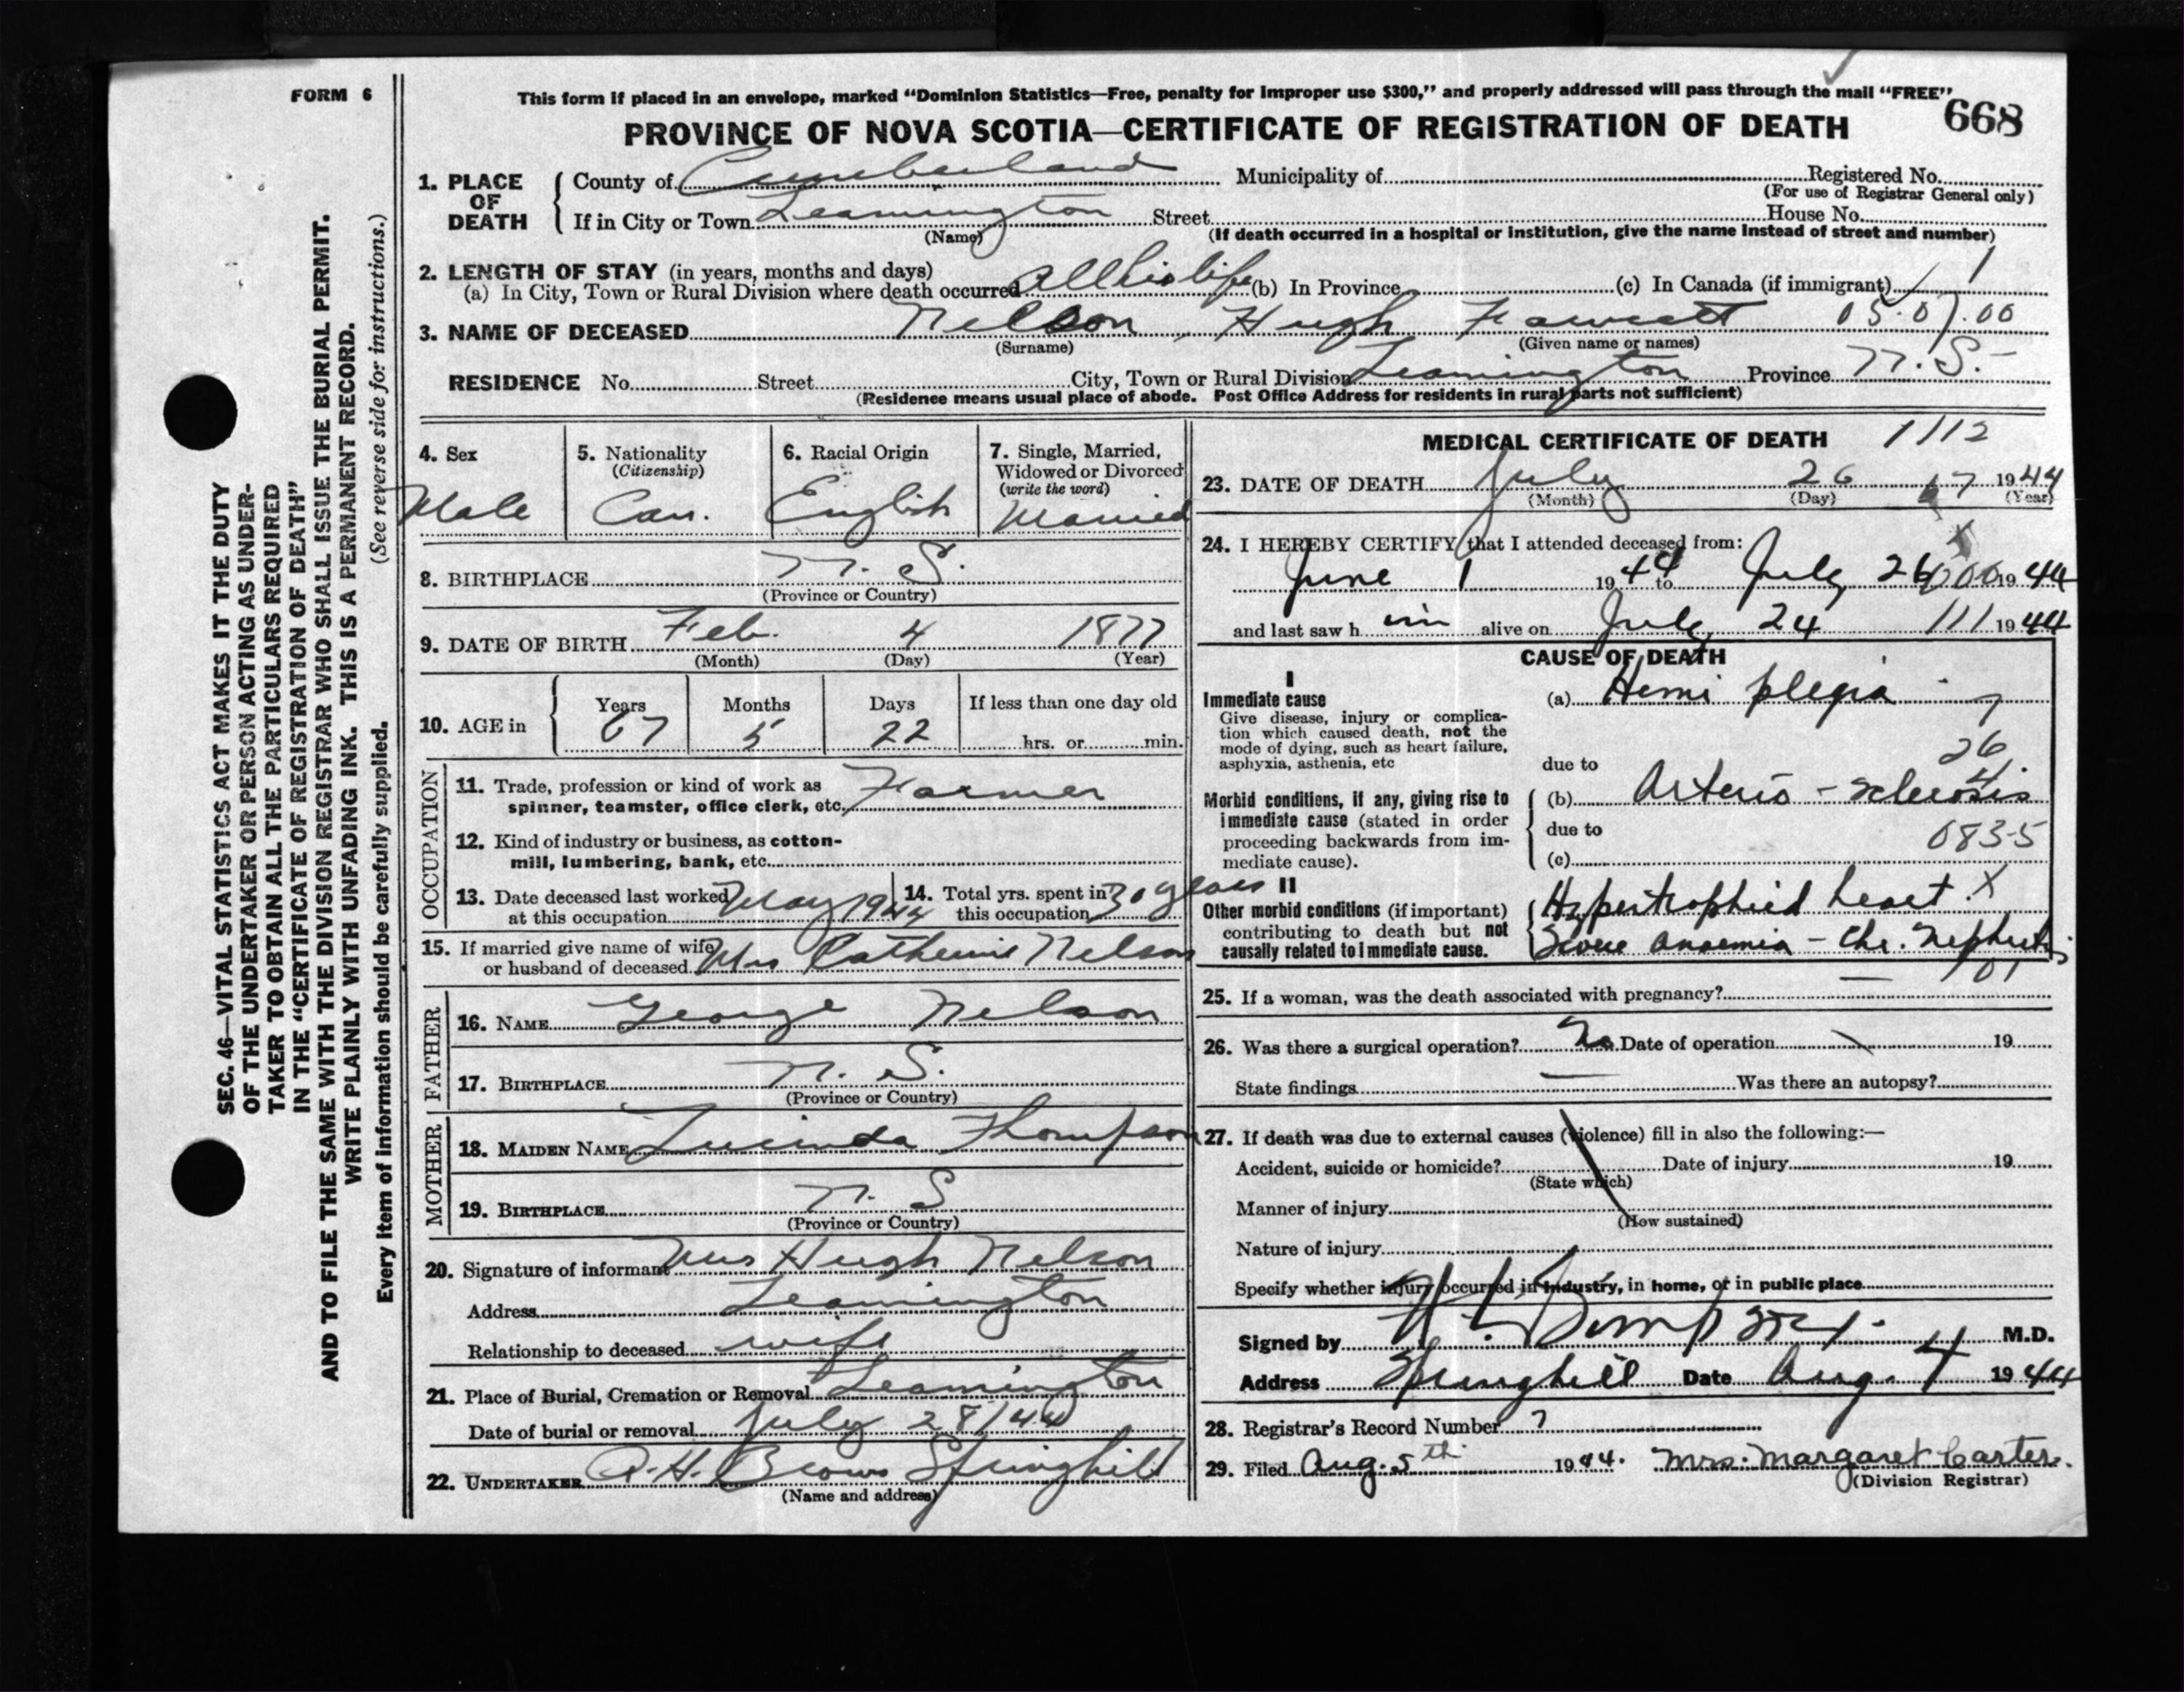 FORM 6
This form if placed in an envelope, marked "Dominion Statistics—Free, penalty for improper use $300," and properly addressed will pass through the mail "FREE"
668
PROVINCE OF NOVA SCOTIA—CERTIFICATE OF REGISTRATION OF DEATH
SEC. 46—VITAL STATISTICS ACT MAKES IT THE DUTY
OF THE UNDERTAKER OR PERSON ACTING AS UNDER-
TAKER TO OBTAIN ALL THE PARTICULARS REQUIRED
IN THE "CERTIFICATE OF REGISTRATION OF DEATH"
AND TO FILE THE SAME WITH THE DIVISION REGISTRAR WHO SHALL ISSUE THE BURIAL PERMIT.
WRITE PLAINLY WITH UNFADING INK. THIS IS A PERMANENT RECORD.
(See reverse side for instructions.)
Every item of information should be carefully supplied.
1. PLACE OF DEATH
County of Cumberland Municipality of Registered No.
(For use of Registrar General only)
If in City or Town Leamington Street House No.
(Name) (If death occurred in a hospital or institution, give the name instead of street and number)
2. LENGTH OF STAY (in years, months and days)
(a) In City, Town or Rural Division where death occurred All his life (b) In Province (c) In Canada (if immigrant)
3. NAME OF DECEASED Nelson, Hugh Fawcett 05.07.00
(Surname) (Given name or names)
RESIDENCE No. Street City, Town or Rural Division Leamington Province N.S.
(Residence means usual place of abode. Post Office Address for residents in rural parts not sufficient)
4. Sex
Male
5. Nationality
(Citizenship)
Can.
6. Racial Origin
English
7. Single, Married,
Widowed or Divorced
(write the word)
Married
8. BIRTHPLACE N. S.
(Province or Country)
9. DATE OF BIRTH Feb. 4 1877
(Month) (Day) (Year)
10. AGE in
Years Months Days If less than one day old
67 5 22 hrs. or min.
OCCUPATION
11. Trade, profession or kind of work as
spinner, teamster, office clerk, etc. Farmer
12. Kind of industry or business, as cotton-
mill, lumbering, bank, etc.
13. Date deceased last worked
at this occupation May 1944
14. Total yrs. spent in
this occupation 30 years
15. If married give name of wife
or husband of deceased Mrs Catherine Nelson
FATHER
16. NAME George Nelson
17. BIRTHPLACE N. S.
(Province or Country)
MOTHER
18. MAIDEN NAME Lucinda Thompson
19. BIRTHPLACE N. S
(Province or Country)
20. Signature of informant Mrs Hugh Nelson
Address Leamington
Relationship to deceased wife
21. Place of Burial, Cremation or Removal Leamington
Date of burial or removal July 28/44
22. UNDERTAKER A. H. Brown Springhill
(Name and address)
MEDICAL CERTIFICATE OF DEATH 1112
23. DATE OF DEATH July 26 1944
(Month) (Day) (Year)
24. I HEREBY CERTIFY that I attended deceased from:
June 1 1944 to July 26 1944
and last saw him alive on July 24 111 1944
CAUSE OF DEATH
I
Immediate cause
Give disease, injury or complica-
tion which caused death, not the
mode of dying, such as heart failure,
asphyxia, asthenia, etc
(a) Hemi plegia
26
due to
Morbid conditions, if any, giving rise to
immediate cause (stated in order
proceeding backwards from im-
mediate cause).
(b) Arterio-sclerosis
due to 083-5
(c)
II
Other morbid conditions (if important)
contributing to death but not
causally related to immediate cause.
Hypertrophied heart. X
Severe Anaemia - Chr. Nephritis
101
25. If a woman, was the death associated with pregnancy? —
26. Was there a surgical operation? No Date of operation 19
State findings — Was there an autopsy?
27. If death was due to external causes (violence) fill in also the following:—
Accident, suicide or homicide? Date of injury 19
(State which)
Manner of injury
(How sustained)
Nature of injury
Specify whether injury occurred in industry, in home, or in public place
Signed by Dempsey. M.D.
Address Springhill Date Aug. 4 1944
28. Registrar's Record Number 7
29. Filed Aug. 5th 1944. Mrs. Margaret Carter.
(Division Registrar)